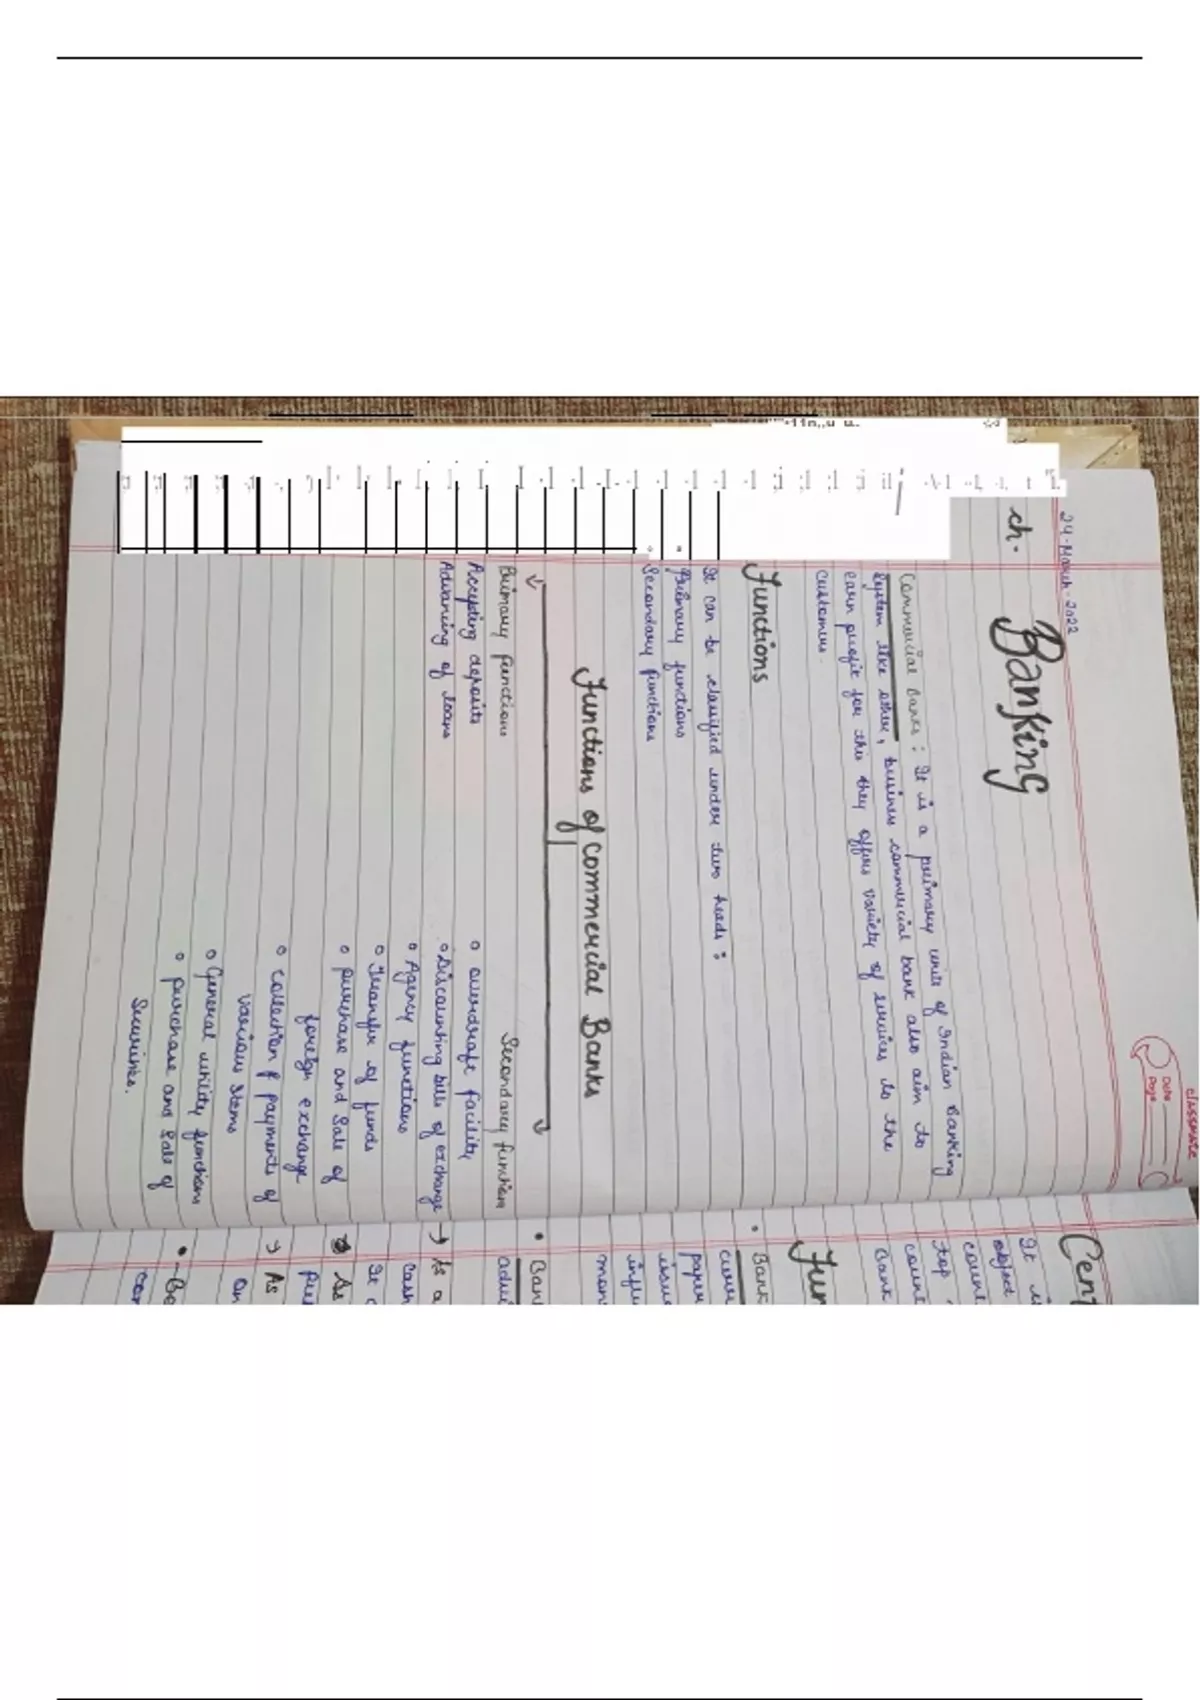 classmate
Date
Page
24-March-2022
ch. Banking
Commercial Banks : It is a primary unit of Indian Banking
system like other, business commercial bank also aim to
earn profit for this they offers variety of services to the
customers.
Functions
It can be classified under two heads :
• Primary functions
• Secondary functions
Functions of Commercial Banks
Primary functions
Accepting deposits
Advancing of loans
Secondary functions
o overdraft facility
o Discounting bills of exchange
o Agency functions
o Transfer of funds
o purchase and Sale of
foreign exchange
o collection & payments of
various Items
o General utility functions
o purchase and Sale of
Securities.
Cent
It is
object
count
top
count
Bank
Fun
• Bank
curre
paper
issue
influ
mon
• Ban
advi
→ Is a
cash
It c
As
pu
→ As
an
• Be
con